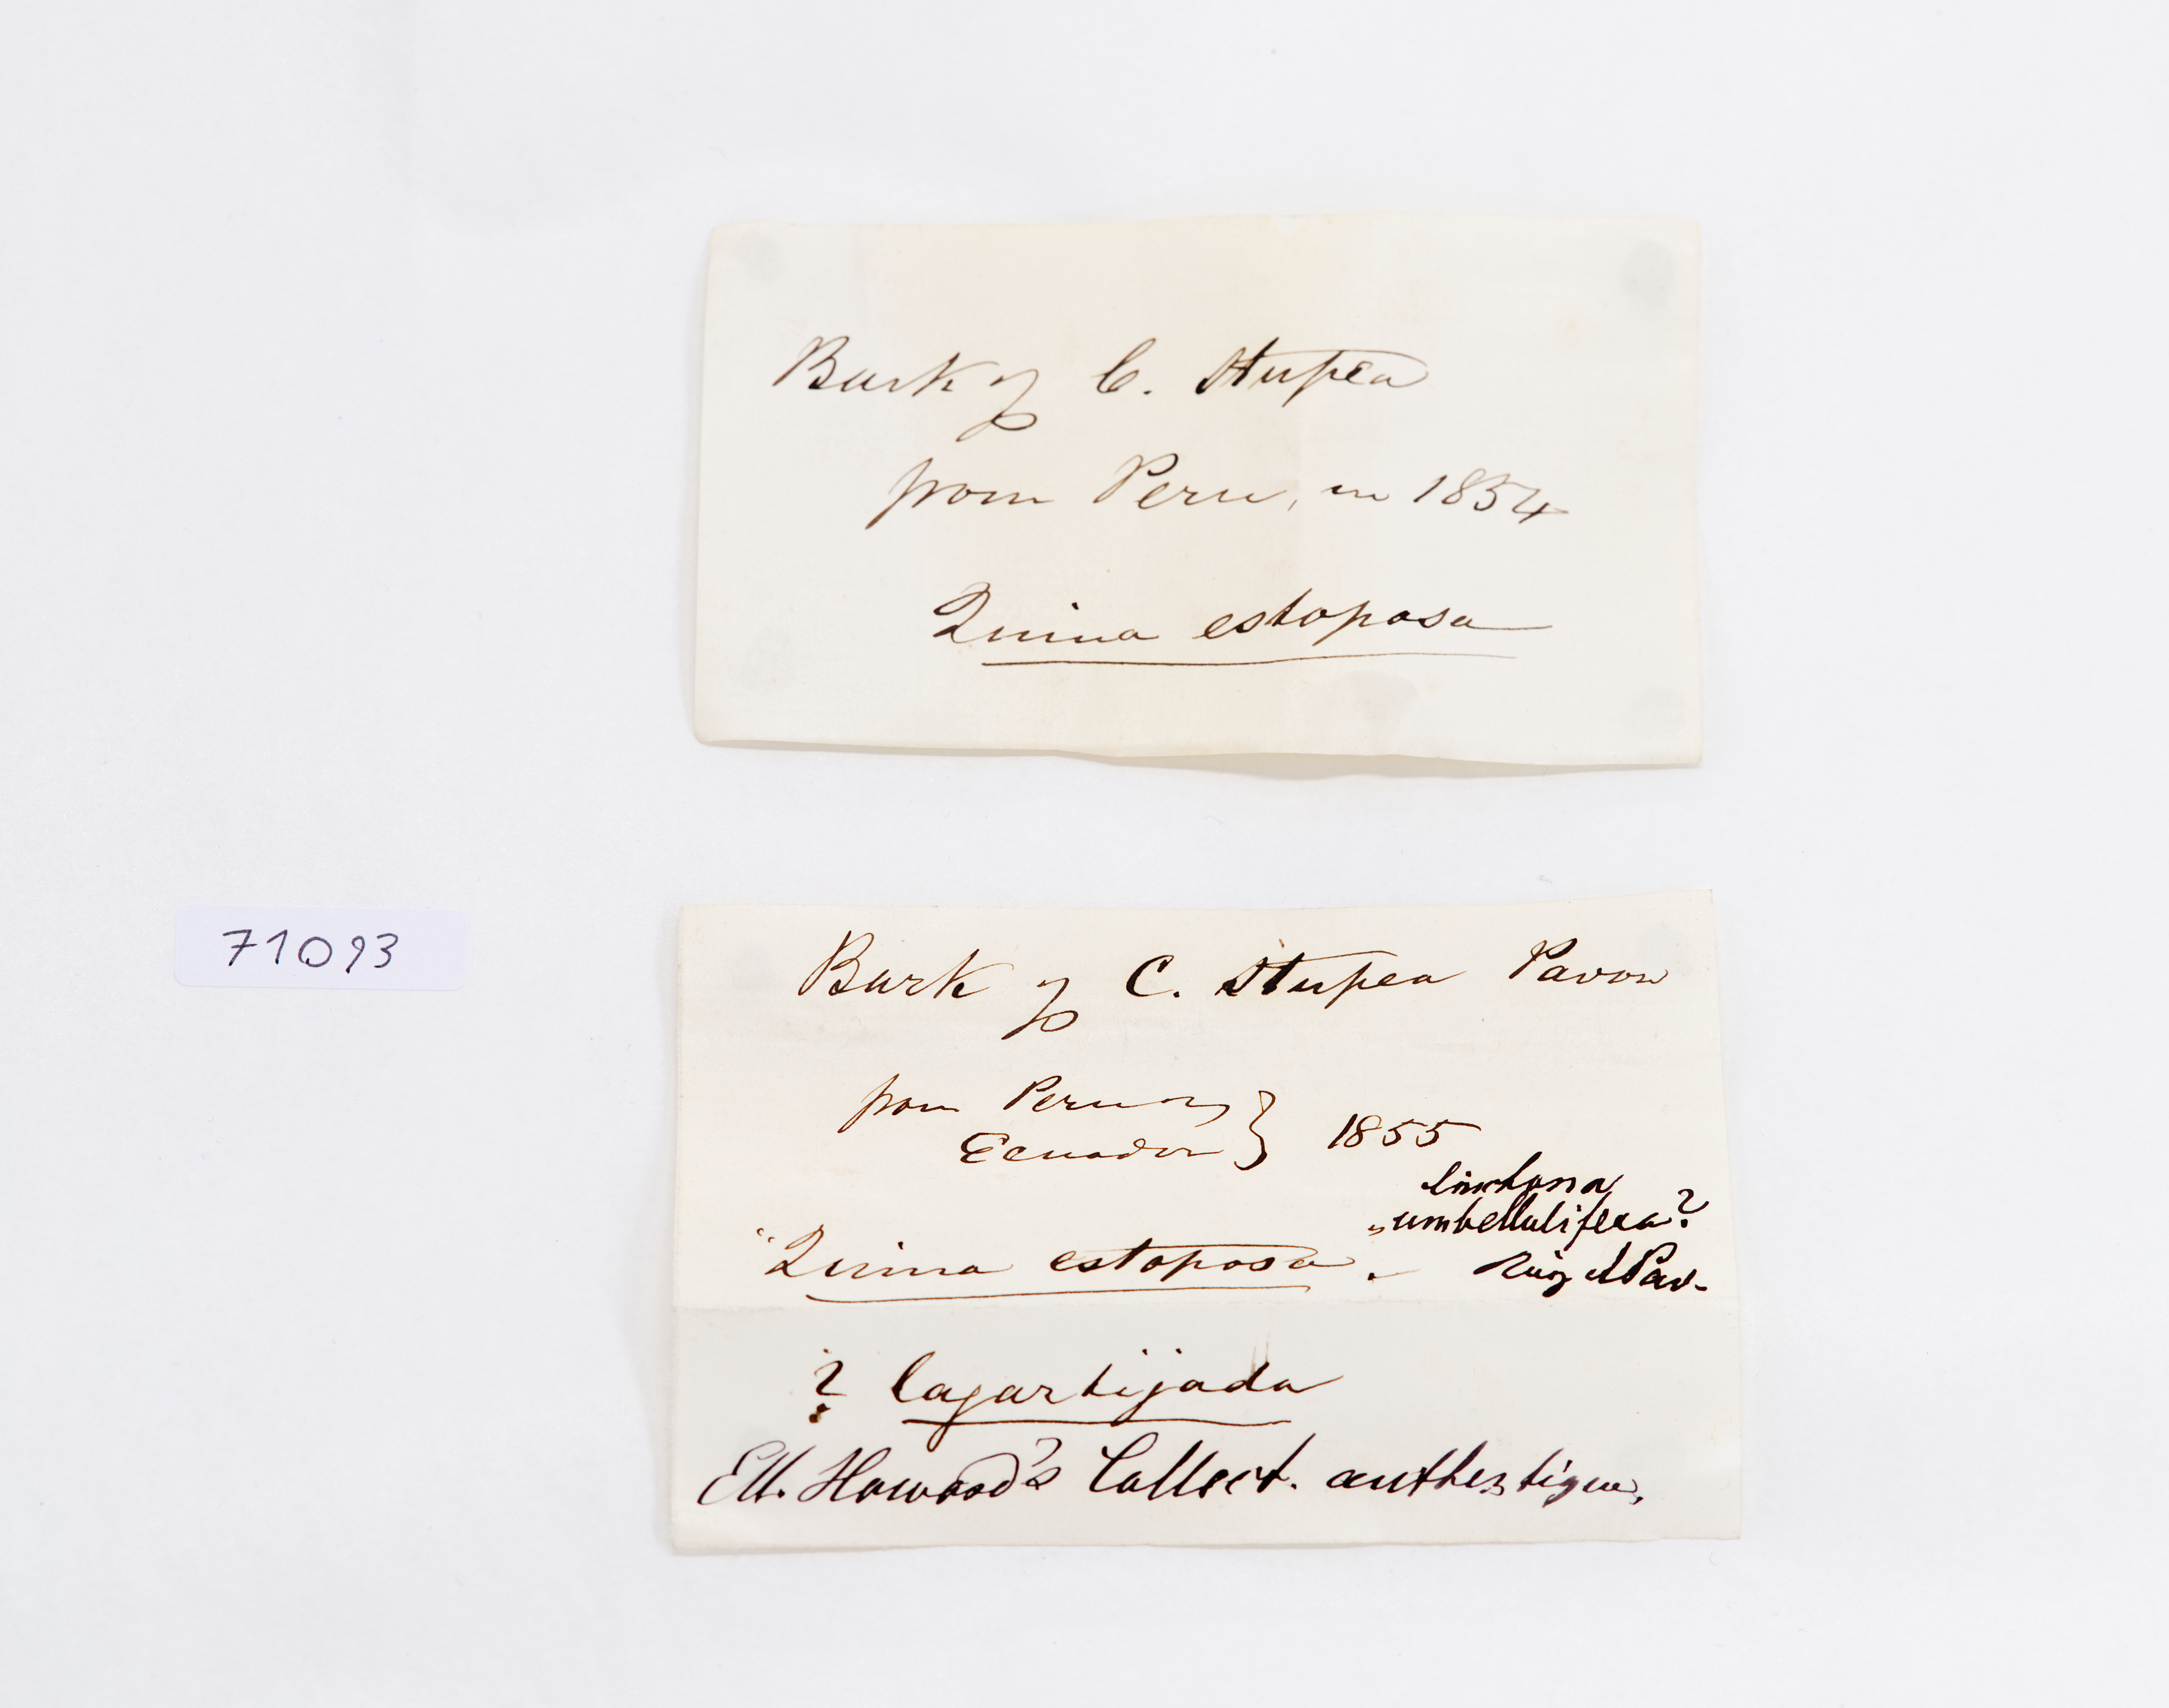 Bark of C. Stupea
from Peru, in 1854
Quina estoposa
71093
Bark of C. Stupea Pavon
from Peru or
Ecuador } 1855
Cinchona
umbellulifera?
"Quina estoposa. Ruiz & Pav.
? lagartijada
Ell. Howard's Collect. authentique,